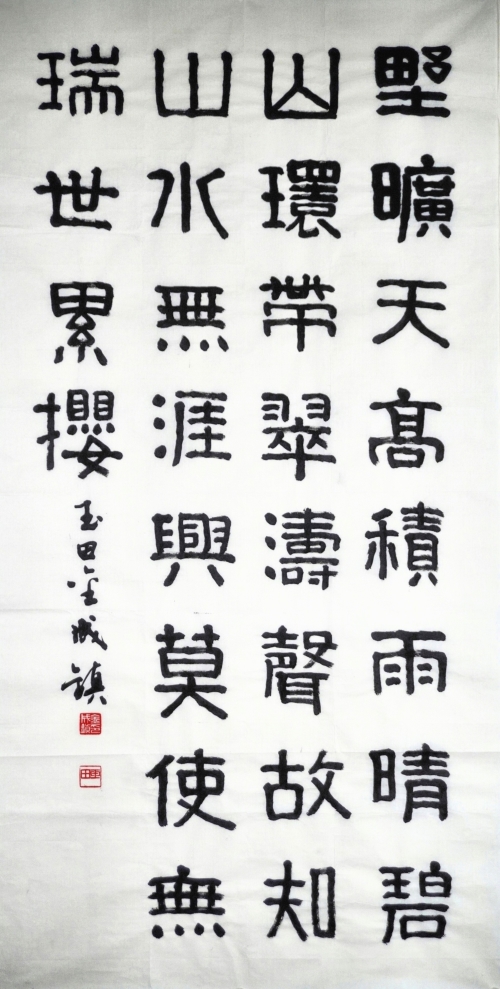 墅曠天高積雨晴碧
山環帶翠濤聲故知
山水無涯興莫使無
瑞世累攖
玉田金成鎮